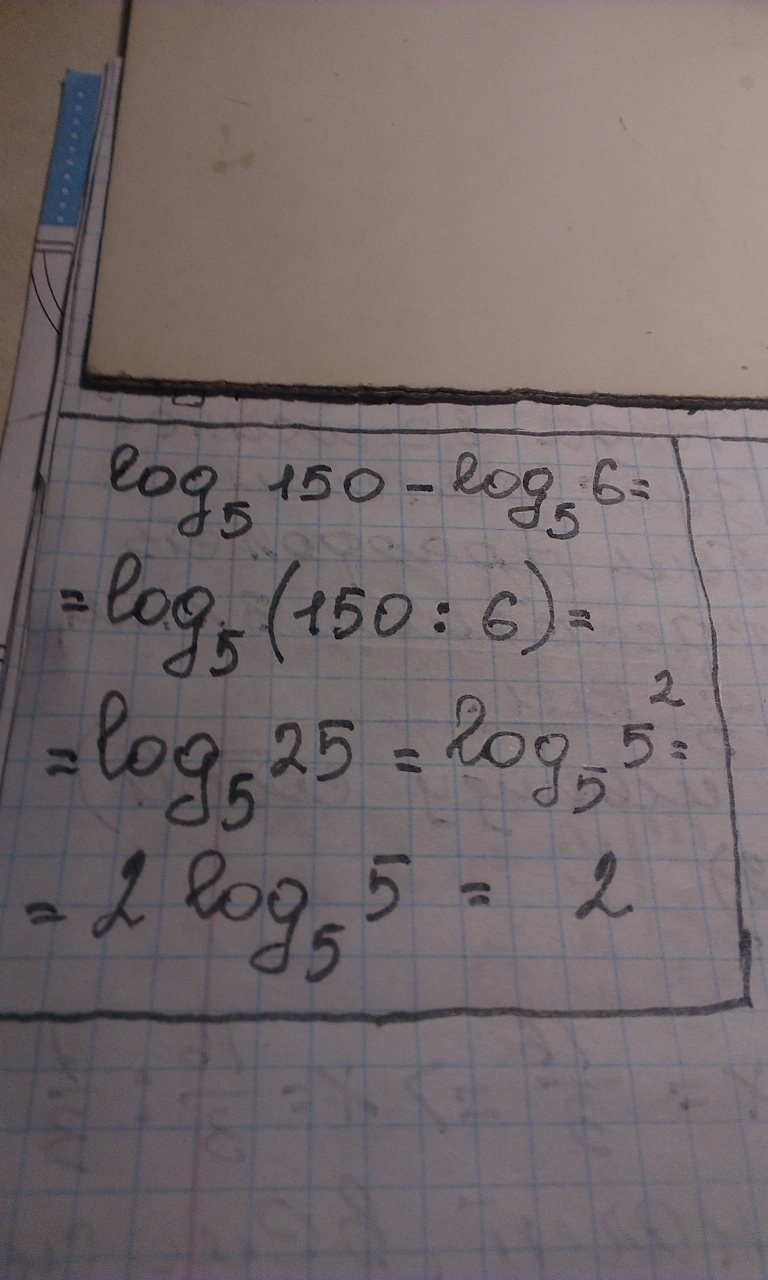 log₅ 150 - log₅ 6 =
= log₅ (150 : 6) =
= log₅ 25 = log₅ 5² =
= 2 log₅ 5 = 2